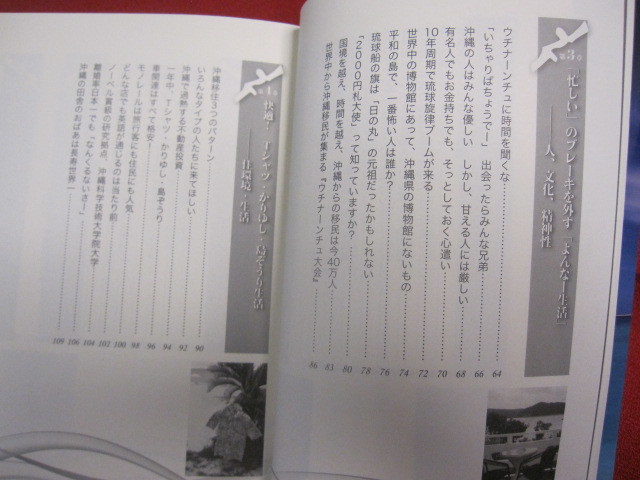 第3章
「忙しい」のブレーキを外す「よんなー生活」
――人、文化、精神性
ウチナーンチュに時間を聞くな 64
「いちゃりばちょうでー」 出会ったらみんな兄弟 66
沖縄の人はみんな優しい しかし、甘える人には厳しい 68
有名人でもお金持ちでも、そっとしておく心遣い 70
10年周期で琉球旋律ブームが来る 72
世界中の博物館にあって、沖縄県の博物館にないもの 74
平和の島で、一番怖い人は誰か? 76
琉球船の旗は「日の丸」の元祖だったかもしれない 78
「2000円札大使」って知っていますか? 80
国境を越え、時間を越え、沖縄からの移民は今40万人 83
世界中から沖縄移民が集まる『ウチナーンチュ大会』 86
第4章
快適!「Tシャツ・かりゆし・島ぞうり生活」
――住環境・生活
沖縄移住3つのパターン 90
いろんなタイプの人たちに来てほしい 92
沖縄で過熱する不動産投資 94
一年中、Tシャツ・かりゆし・島ぞうり 96
車関連はすべて格安! 98
モノレールは旅行客にも住民にも人気 100
どんな店でも英語が通じるのは当たり前 102
ノーベル賞級の研究拠点、沖縄科学技術大学院大学 104
離婚率日本一でも「なんくるないさー」 106
沖縄の田舎のおばあは長寿世界一 109